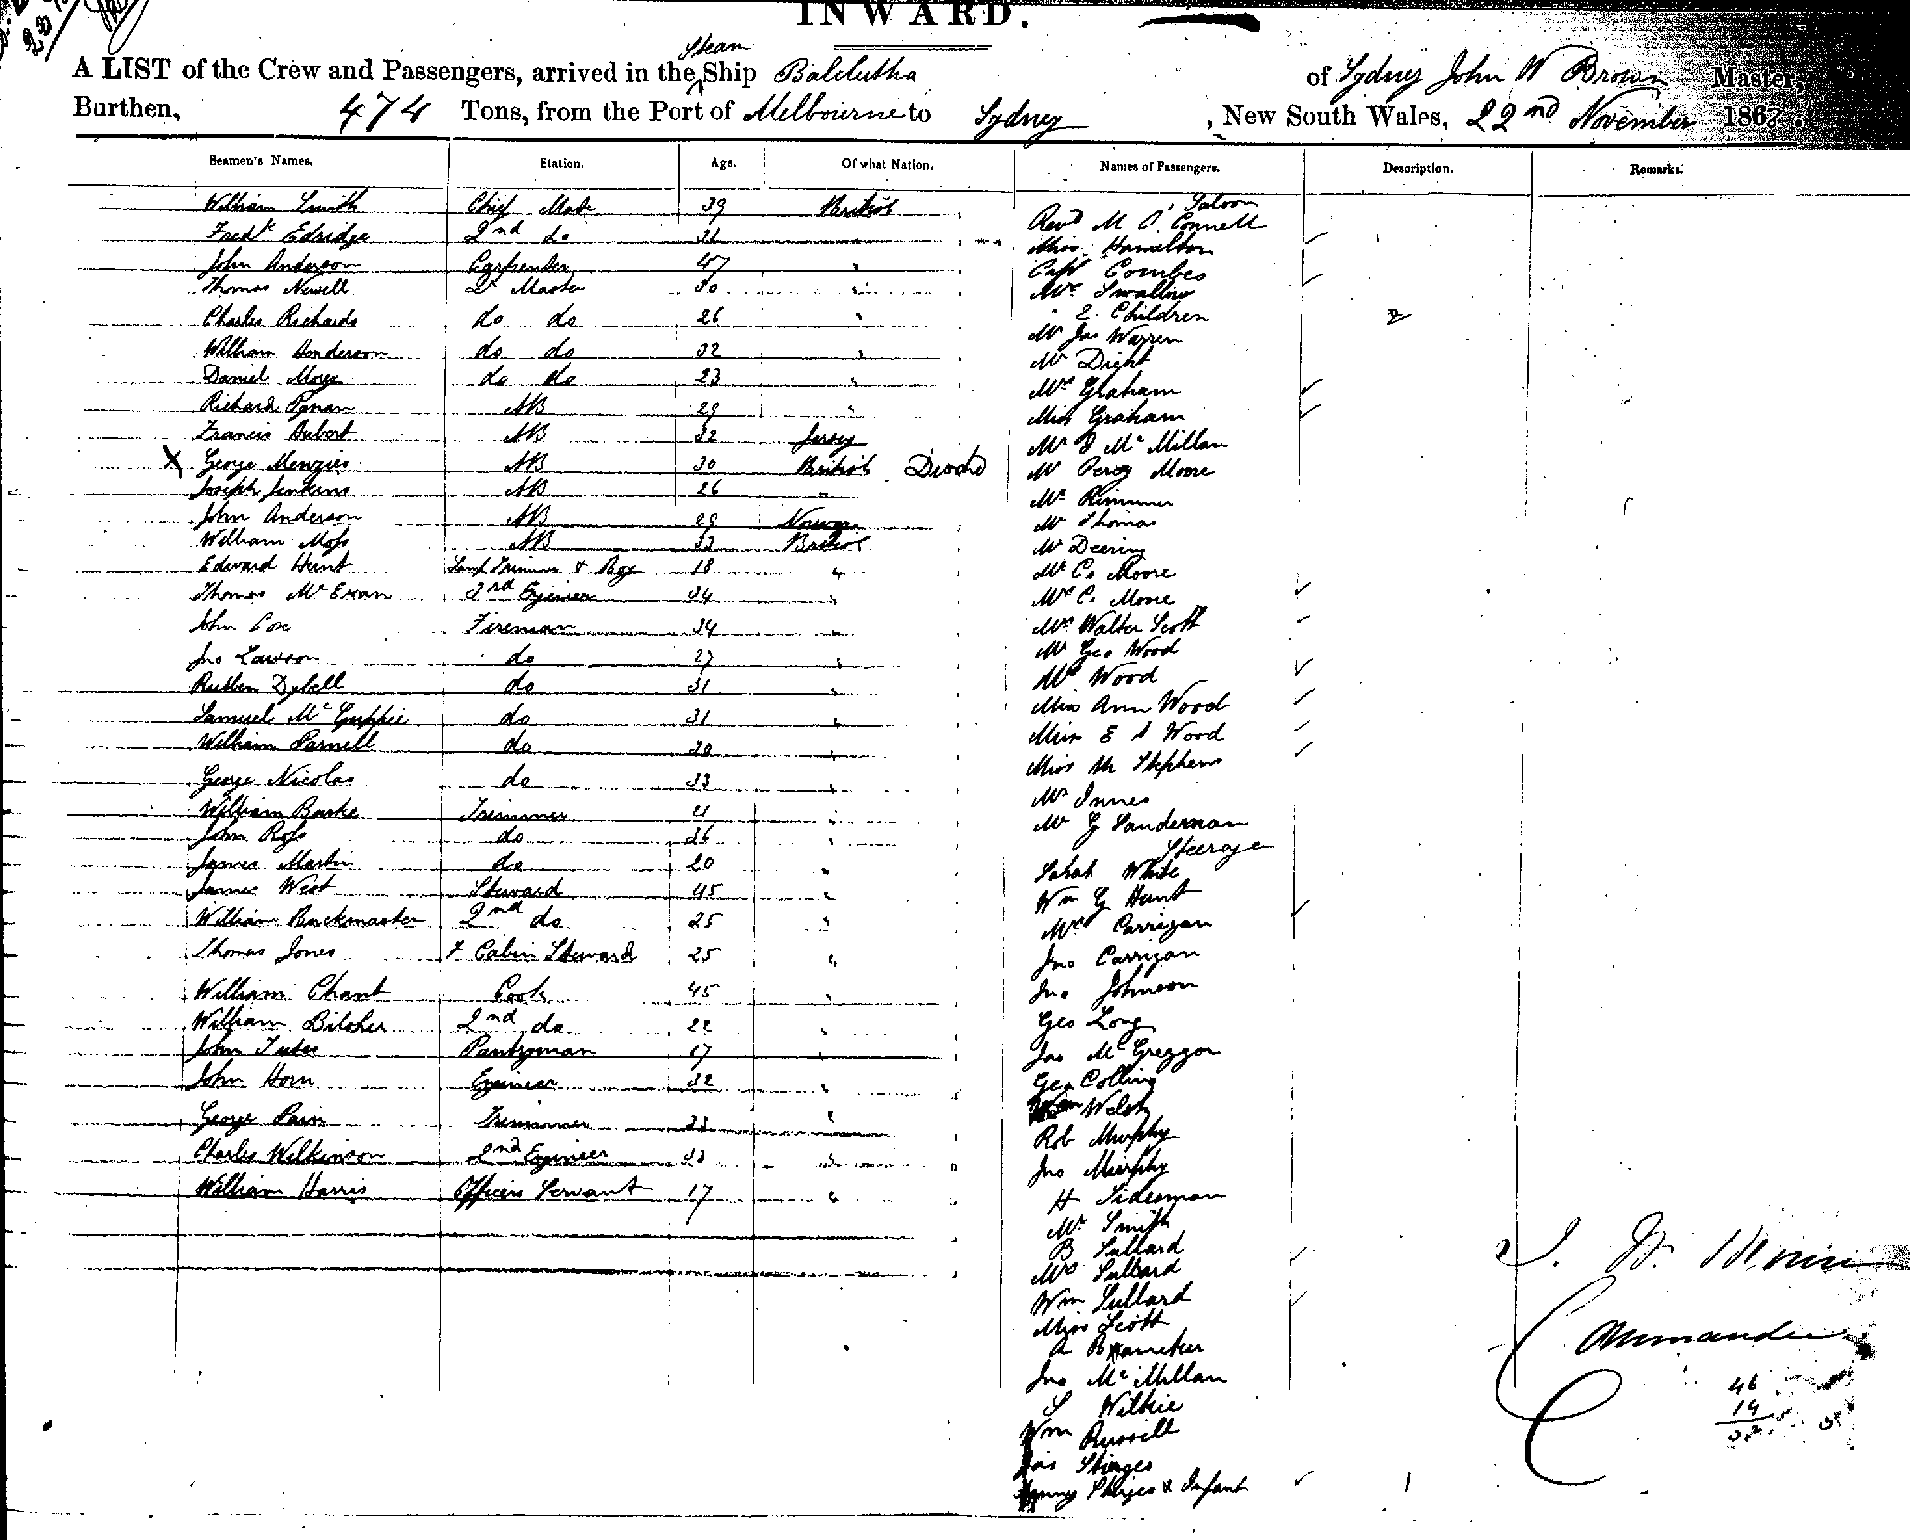 INWARD.
Steam
A LIST of the Crew and Passengers, arrived in the Ship Balclutha of Sydney John W Brown Master,
Burthen, 474 Tons, from the Port of Melbourne to Sydney, New South Wales, 22nd November 186
Seamen's Names. Station. Age. Of what Nation. Names of Passengers. Description. Remarks.
William Smith Chief Mate 39 British
Fredk Edridge 2nd do 31 "
John Anderson Carpenter 47 "
Thomas Newell Qr Master 30 "
Charles Richards do do 26 "
William Anderson do do 32 "
Daniel do do 23 "
Richard AB 29 "
Francis Aubert AB 32 Jersey
X George Menzies AB 30 British
Joseph Jenkins AB 26 "
John Anderson AB 29 Norway
William Moss AB 33 British
Edward Hunt Lamp Trimmer & Boy 18 "
Thomas McEwan 3rd Engineer 34 "
John Cox Fireman 34 "
Jno Lawson do 27 "
Ruthen Dybell do 31 "
Samuel McGuffie do 31 "
William Parnell do 30 "
George Nicolas do 33 "
William Burke Trimmer "
John Ross do 26 "
James Martin do 20 "
James West Steward 45 "
William Buckmaster 2nd do 25 "
Thomas Jones F Cabin Steward 25 "
William Chant Cook 45 "
William Bilcher 2nd do 22 "
John Pantryman 17 "
John Horn Engineer 32 "
George Pain Trimmer 33 "
Charles Wilkinson 2nd Engineer 33 "
William Harris Officers Servant 17 "
Saloon
Revd M O'Connell
Miss Hamilton
Capt Combes
Mrs Swallow
2 Children 2
Mr Jas Warren
Mr Dight
Mrs Graham
Miss Graham
Mr D McMillan
Mr Percy Moore
Mr Rimmer
Mr Thomas
Mr Deering
Mr C. Moore
Mrs C. Moore
Mr Walter Scott
Mr Geo Wood
Mrs Wood
Miss Ann Wood
Miss E S Wood
Miss M Stephens
Mr Innes
Mr G Sanderman
Steerage
Sarah White
Wm G Hunt
Mrs Carrigan
Jno Carrigan
Jno Johnson
Geo Long
Jas McGreggor
Geo Collins
Wm Welsh
Rob Murphy
Jno Murphy
H Siderman
Mr Smith
B Sullard
Mrs Sullard
Wm Sullard
Miss Scott
Jno McMillan
S Wilkie
Wm Russell
Jas Sturges
Sturges & Infant 1
J. W. Brown
Commander
46
19